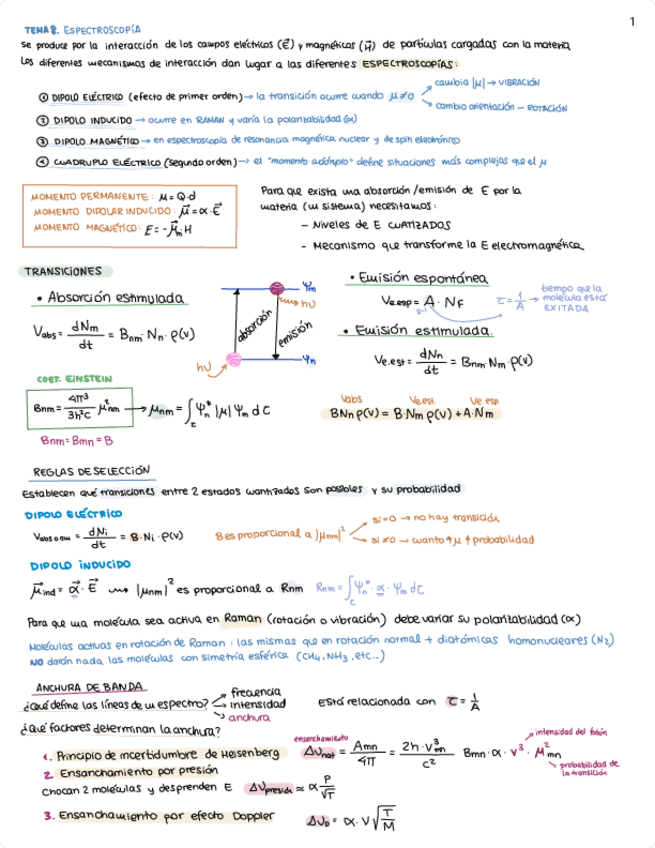 1
TEMA 8. ESPECTROSCOPÍA
se produce por la interacción de los campos eléctricos (E⃗) y magnéticos (H⃗) de partículas cargadas con la materia
Los diferentes mecanismos de interacción dan lugar a las diferentes ESPECTROSCOPÍAS:
① DIPOLO ELÉCTRICO (efecto de primer orden) → la transición ocurre cuando μ≠0
cambia |μ| → VIBRACIÓN
cambio orientación – ROTACIÓN
② DIPOLO INDUCIDO → ocurre en RAMAN y varía la polaritabilidad (α)
③ DIPOLO MAGNÉTICO → en espectroscopía de resonancia magnética nuclear y de spin electrónico
④ CUADRUPLO ELÉCTRICO (segundo orden) → el "momento" define situaciones más complejas que el μ
MOMENTO PERMANENTE: μ = Q·d
MOMENTO DIPOLAR INDUCIDO: μ⃗ = α·E⃗
MOMENTO MAGNÉTICO: E = -μ⃗m·H
Para que exista una absorción/emisión de E por la
materia (un sistema) necesitamos:
– Niveles de E CUATIZADOS
– Mecanismo que transforme la E electromagnética
TRANSICIONES
• Absorción estimulada
Vabs = dNm/dt = Bnm· Nn· ρ(ν)
absorción
emisión
Ψm
hν
Ψn
hν
• Emisión espontánea
Ve.esp = A · NF
s-1
τ = 1/A → tiempo que la
molécula está
EXITADA
• Emisión estimulada.
Ve.est = dNn/dt = Bnm·Nm·ρ(ν)
COEF. EINSTEIN
Bnm = 4π³/3h²C μ²nm → μnm = ∫τ Ψn* |μ| Ψm dτ
Bnm = Bmn = B
Vabs Ve.est. Ve.esp
BNnρ(ν) = B·Nmρ(ν) + A·Nm
REGLAS DE SELECCIÓN
Establecen qué transiciones entre 2 estados cuantizados son posibles y su probabilidad
DIPOLO ELÉCTRICO
Vabs o em = dNi/dt = B·Ni·ρ(ν)
B es proporcional a |μnm|²
si=0 → no hay transición
si ≠0 → cuanto ↑μ ↑ probabilidad
DIPOLO INDUCIDO
μ⃗ind = α⃗ · E⃗ → |μnm|² es proporcional a Rnm Rnm = ∫τ Ψn* · α · Ψm dτ
Para que una molécula sea activa en Raman (rotación o vibración) debe variar su polaritabilidad (α)
Moléculas activas en rotación de Raman : las mismas que en rotación normal + diatómicas homonucleares (N2)
NO darán nada las moléculas con simetría esférica (CH4, NH3, etc..)
ANCHURA DE BANDA
¿Qué define las líneas de un espectro?
frecuencia
intensidad
anchura
Está relacionada con τ = 1/A
¿Qué factores determinan la anchura?
1. Principio de incertidumbre de Heisenberg
ensanchamiento
Δνnat = Amn/4π = 2h·ν³mn/c² Bmn·α· ν³· μ²mn
intensidad del fotón
probabilidad de
la transición
2. Ensanchamiento por presión
Chocan 2 moléculas y desprenden E Δνpresión ≈ α P/√T
3. Ensanchamiento por efecto Doppler ΔνD = α·ν √T/M